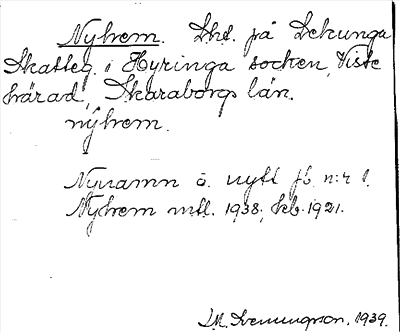 Nyhem. Lht. på Sekunga
Skatteg. i Hyringa socken, Viste
härad, Skaraborgs län.
nýhem.
Nynamn å nytt jb. n:r 1.
Nyhem mtl. 1938, kb. 1921.
Svenningson, 1939.